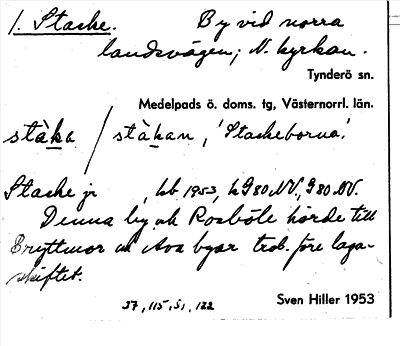 1. Stacke. By vid norra
landsvägen, N. kyrkan.
Tynderö sn.
Medelpads ö. doms. tg, Västernorrl. län.
stàka / stàkan, 'Stackeborna'.
Stacke jr , kb 1953, k G80NV, G80NV.
Denna by och Rosböle hörde till
Bryttmor och Ava byar trol. före laga-
skiftet.
37, 115, 51, 122
Sven Hiller 1953